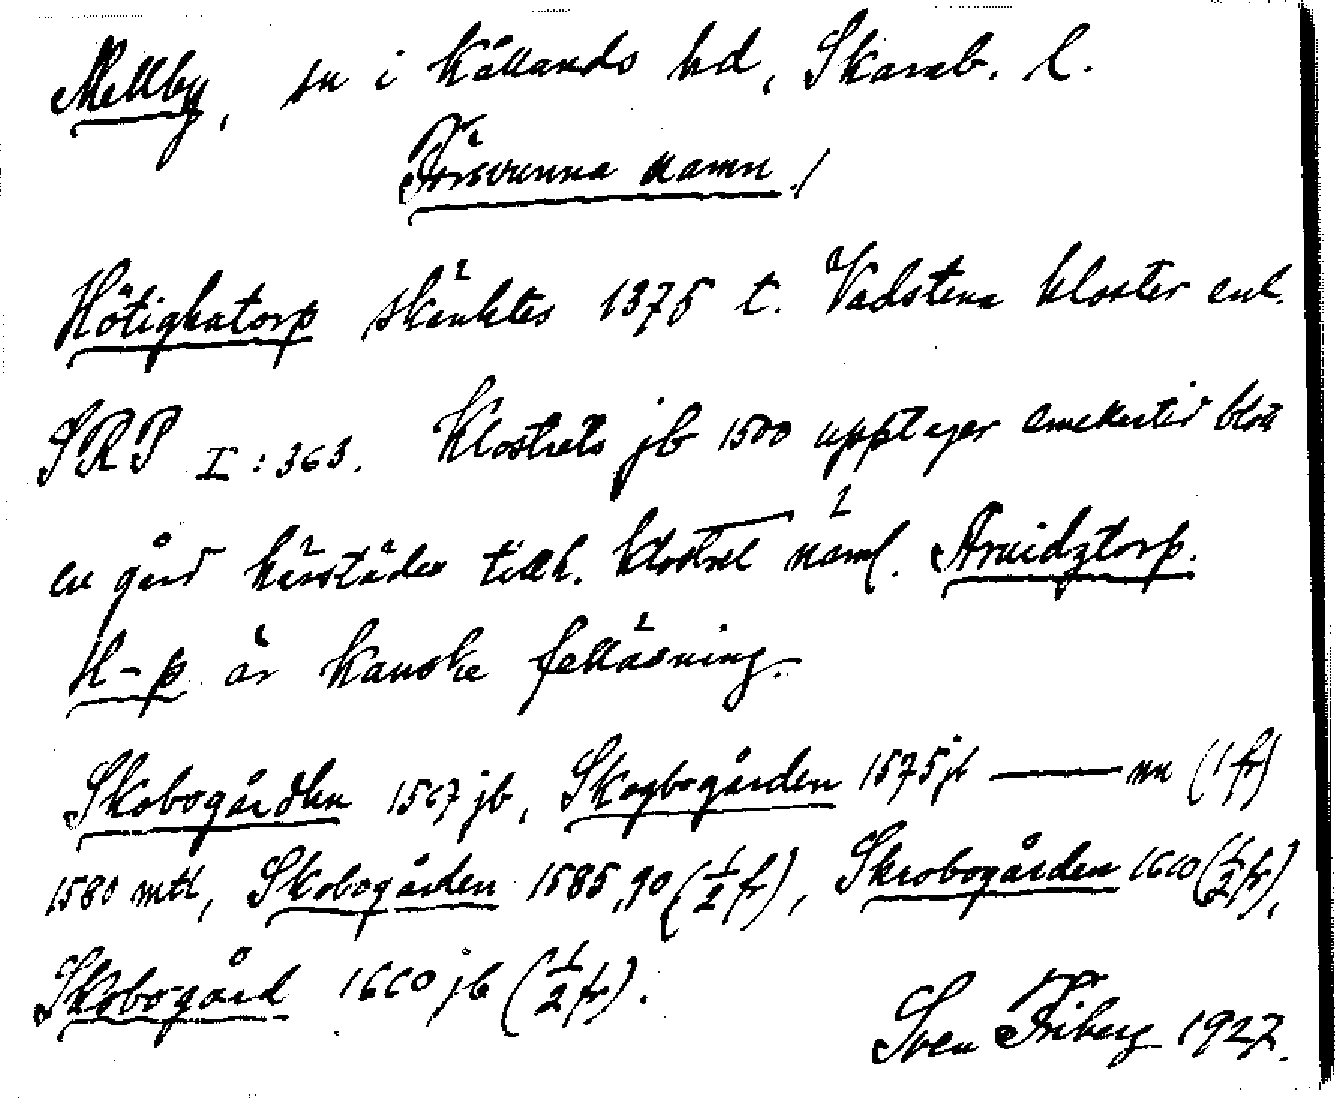 Mellby, sn i Kållands hd, Skarab. l.
Försvunna namn!
Hötighatorp skänktes 1375 t. Vadstena kloster enl.
SRP I: 363. Klostrets jb 1500 upptager emellertid blott
en gård härstädes tillh. klostret näml. Arnidztorp.
H-p är kanske felläsning.
Skobogårdhn 1567 jb, Skogbogården 1575 jb —— nn (1 fr)
1580 mtl, Skobogården 1585, 90 (1/2 fr), Skrobogården 1610 (1/2 fr),
Skobogård 1660 jb (1/2 fr).
Sven Friberg 1927.